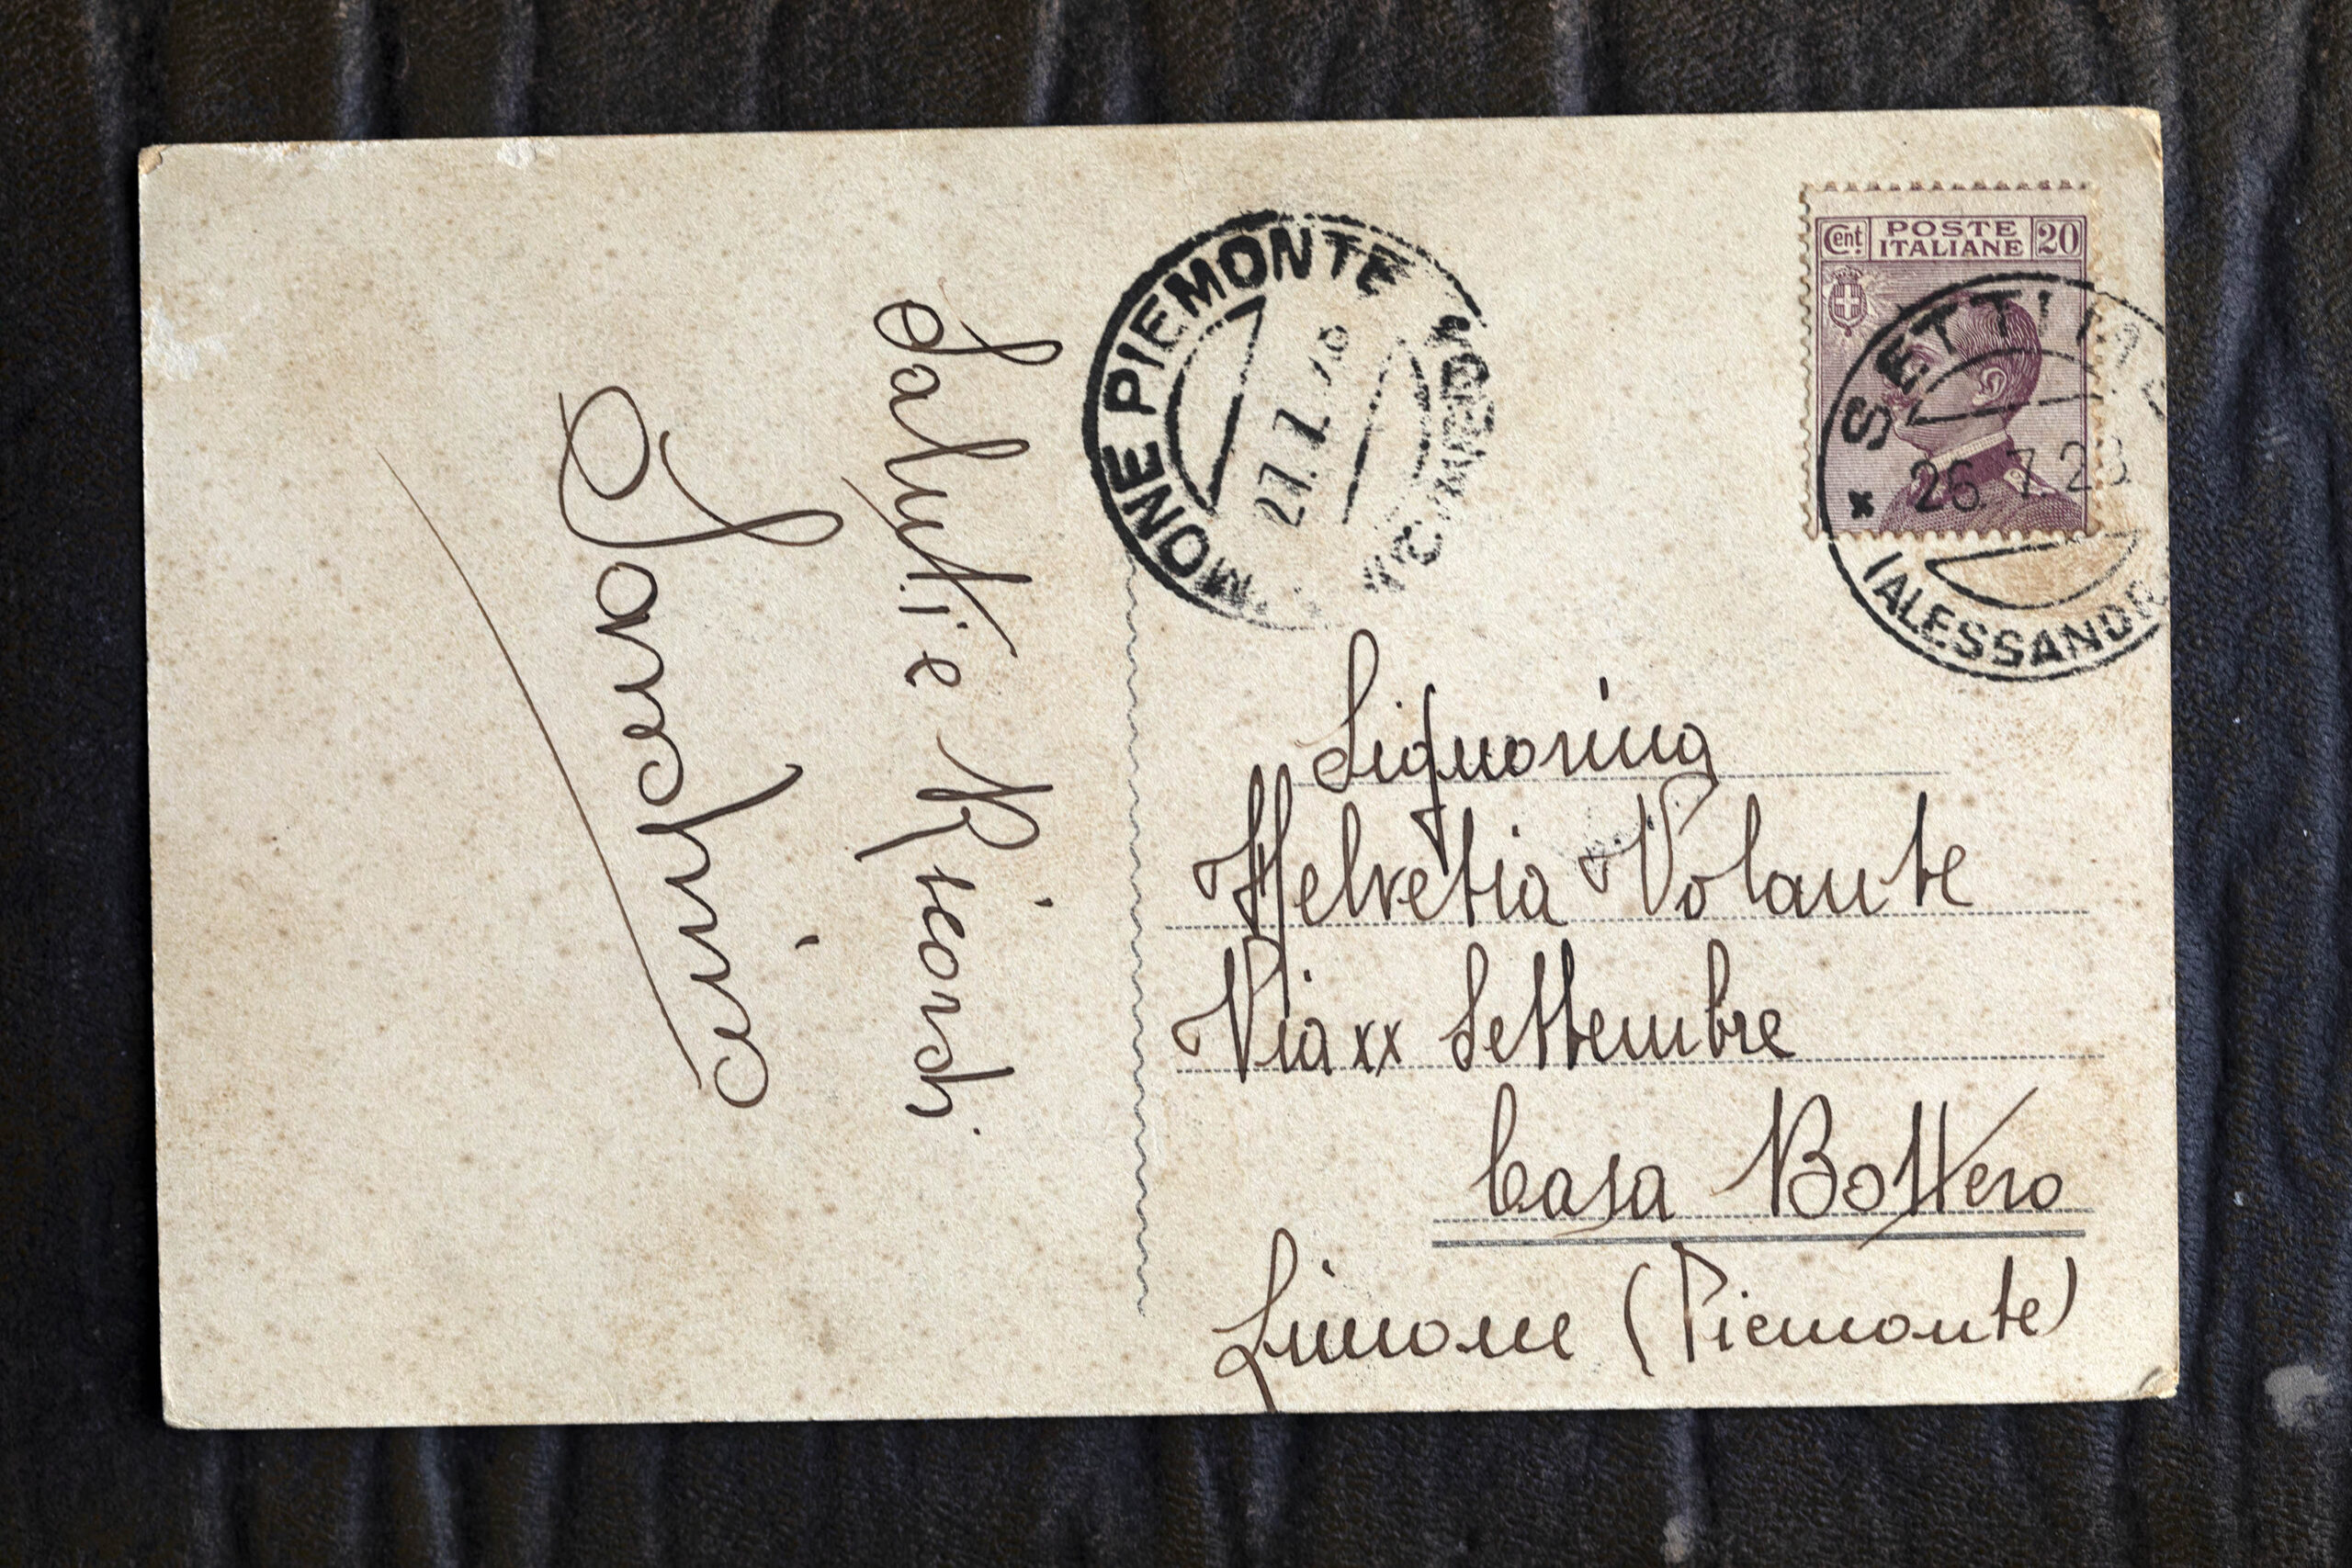 Saluti e Ricordi
MONE PIEMONTE
27.7.28
Cent. POSTE ITALIANE 20
SETTI
26.7.28
(ALESSANDR
Signorina
Helvetia Volante
Via xx Settembre
Casa Bottero
Limone (Piemonte)